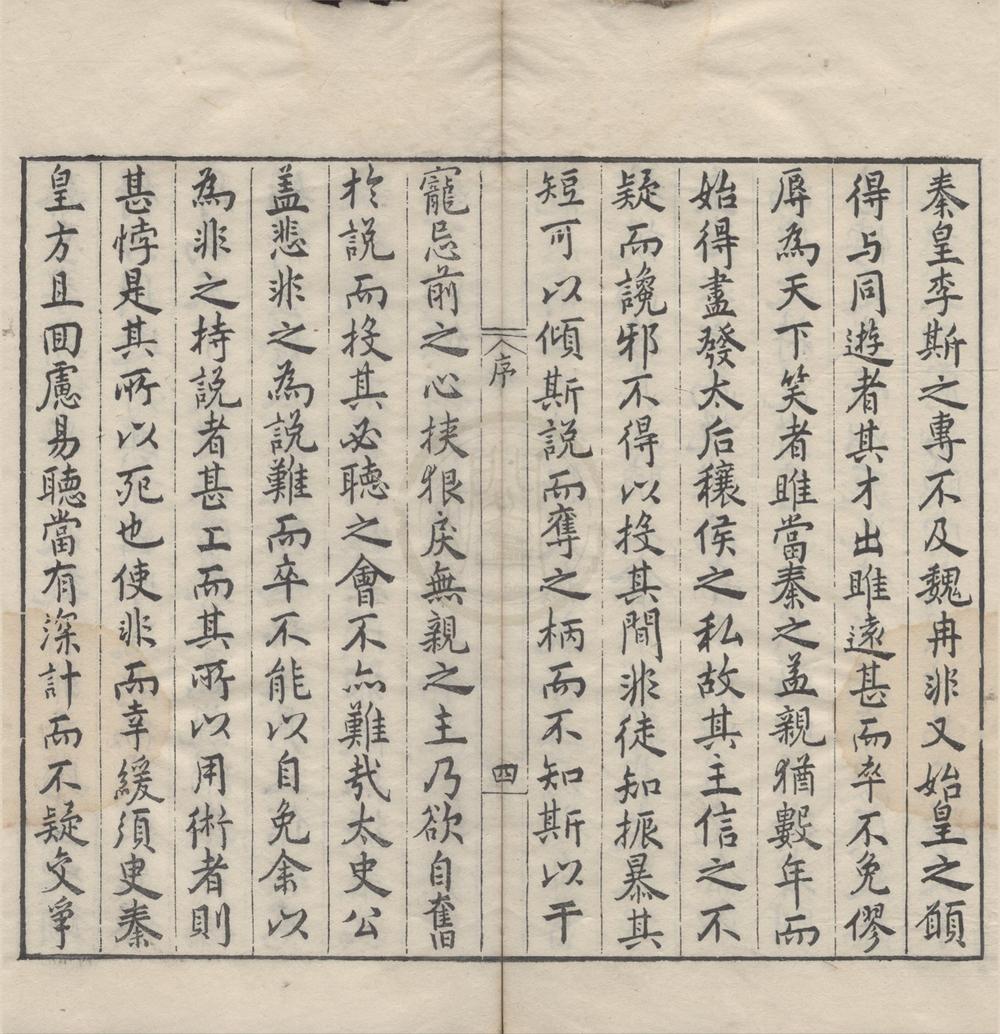 秦皇李斯之專不及魏冉非又始皇之願
得与同遊者其才出雎遠甚而卒不免僇
辱為天下笑者雎當秦之益親猶數年而
始得盡發太后穰侯之私故其主信之不
疑而讒邪不得以投其間非徒知振暴其
短可以傾斯說而奪之柄而不知斯以干
序
四
寵忌前之心挾狠戾無親之主乃欲自奮
於說而投其必聽之會不亦難哉太史公
盖悲非之為說難而卒不能以自免余以
為非之持說者甚工而其所以用術者則
甚悖是其所以死也使非而幸緩須臾秦
皇方且回慮易聽當有深計而不疑交爭